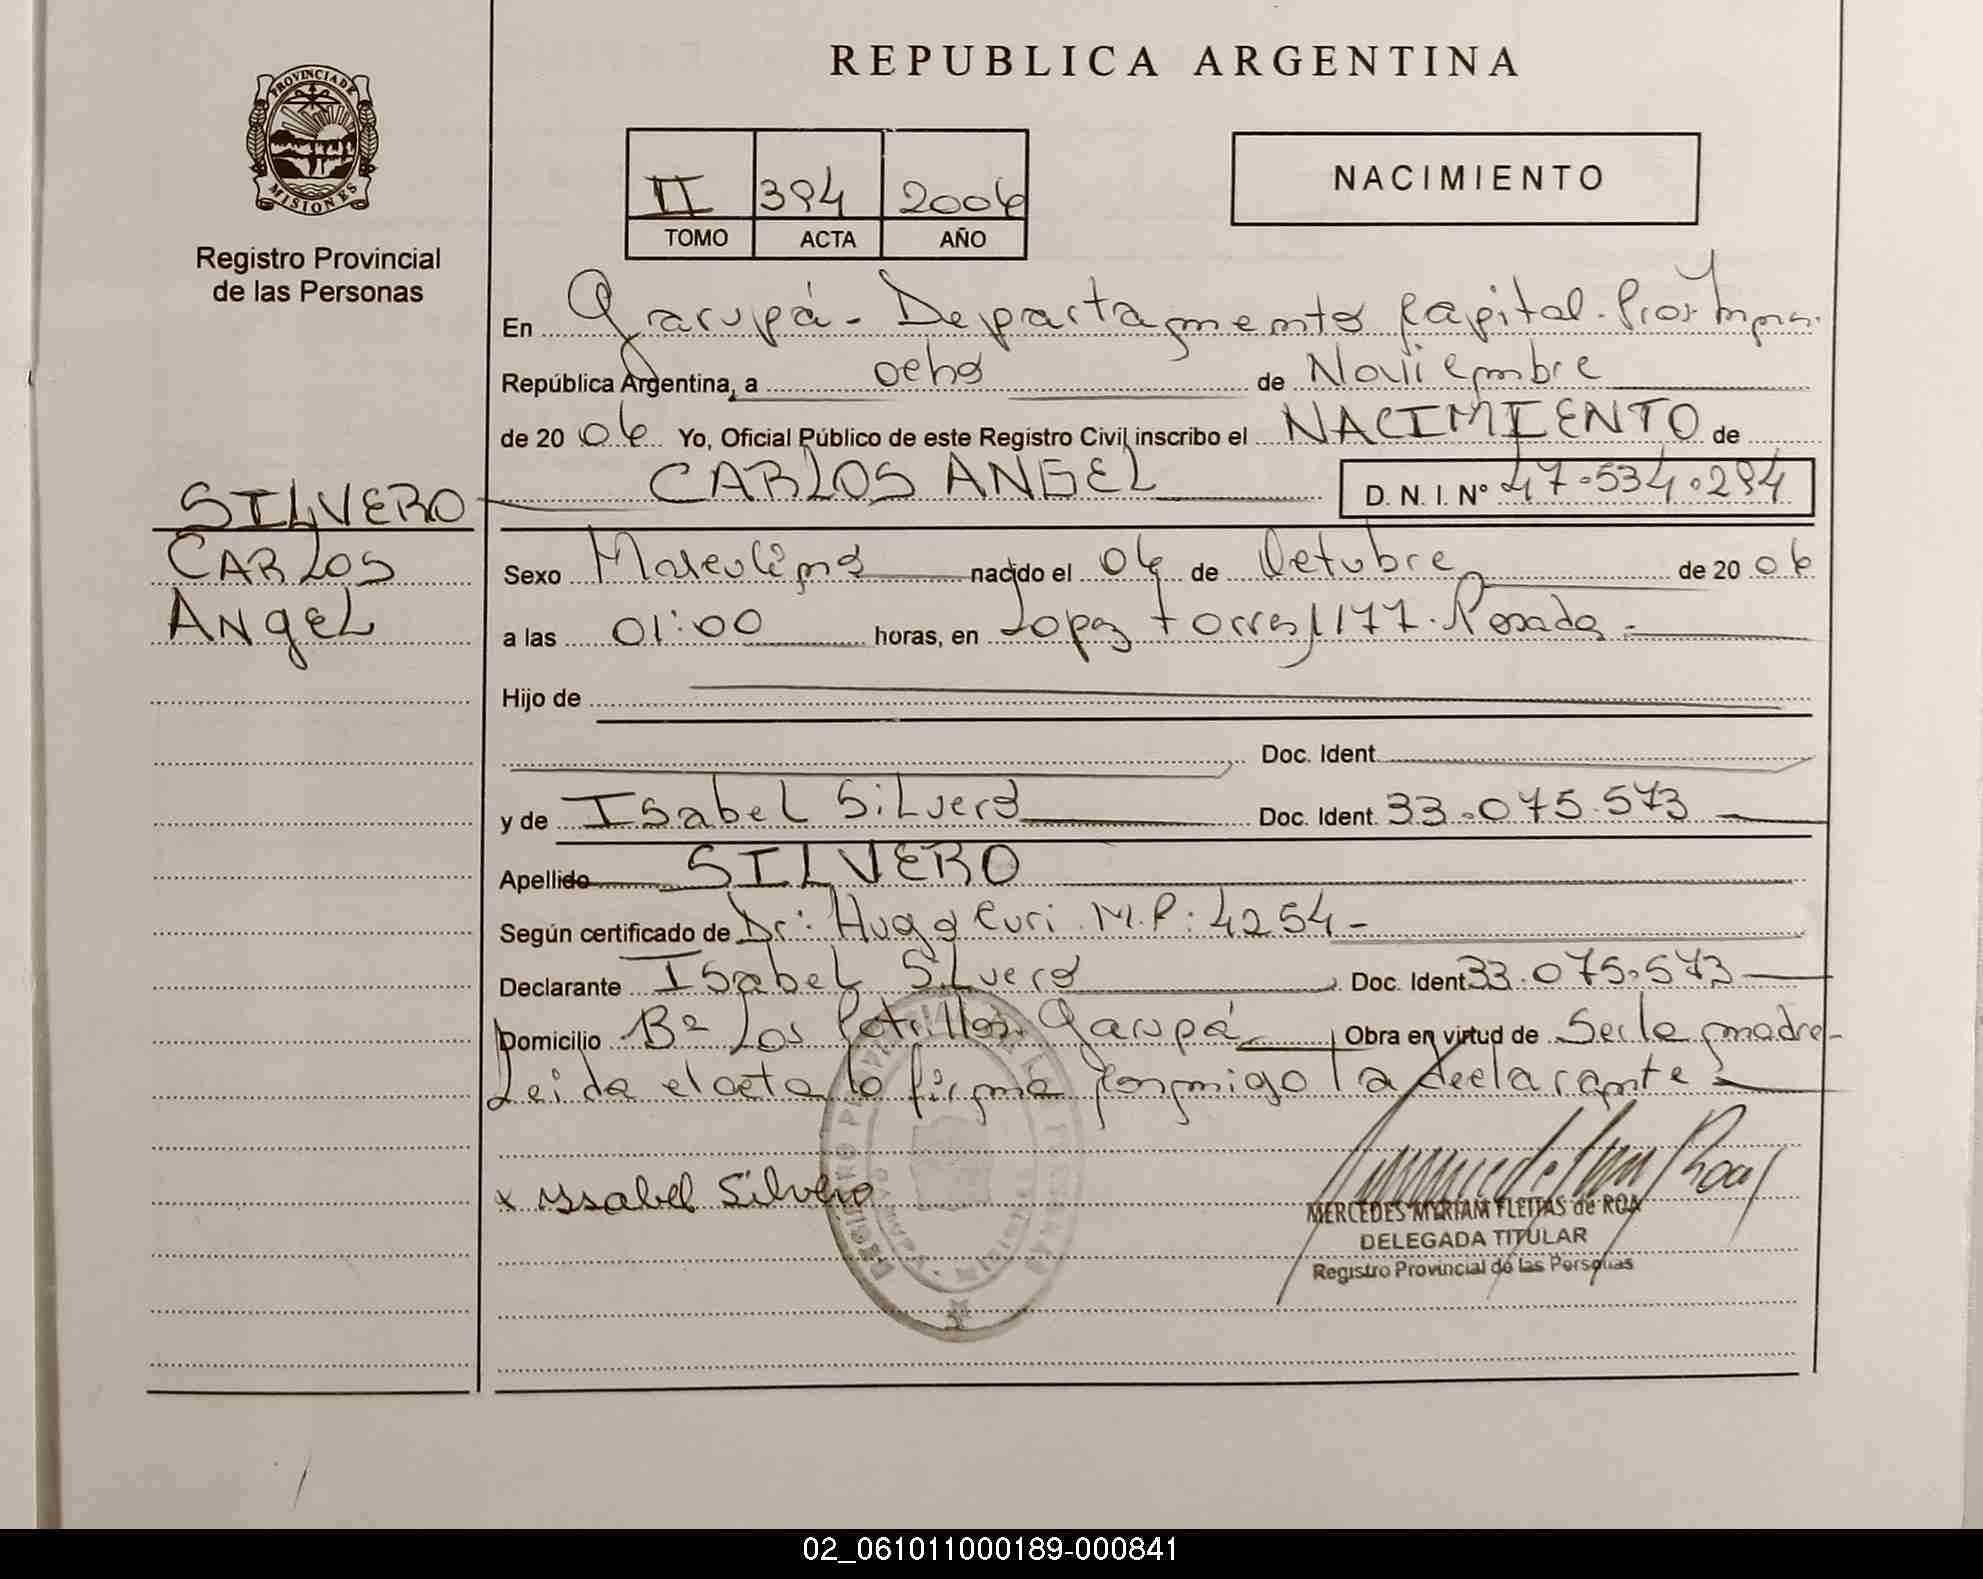 REPUBLICA ARGENTINA
PROVINCIA DE
MISIONES
Registro Provincial
de las Personas
II 394 2006
TOMO ACTA AÑO
NACIMIENTO
En Garupá - Departamento Capital.
República Argentina, a ocho de Noviembre
de 20 06 Yo, Oficial Público de este Registro Civil inscribo el NACIMIENTO de
CARLOS ANGEL D. N. I. Nº 47.534.294
SILVERO
CARLOS
ANgeL
Sexo Masculino nacido el 06 de Octubre de 20 06
a las 01:00 horas, en Lopez Torres 1177. Posadas
Hijo de
Doc. Ident.
y de Isabel Silvero Doc. Ident. 33.075.573
Apellido SILVERO
Según certificado de Dr: Hugo Curi. M.P: 4254-
Declarante Isabel Silvero Doc. Ident 33.075.573
Domicilio Bº Los Potrillos. Garupá Obra en virtud de Ser la madre-
Leida el acta lo firma conmigo la declarante
x Yssabel Silvero
MERCEDES MYRIAM FLEITAS de ROA
DELEGADA TITULAR
Registro Provincial de las Personas
02_061011000189-000841